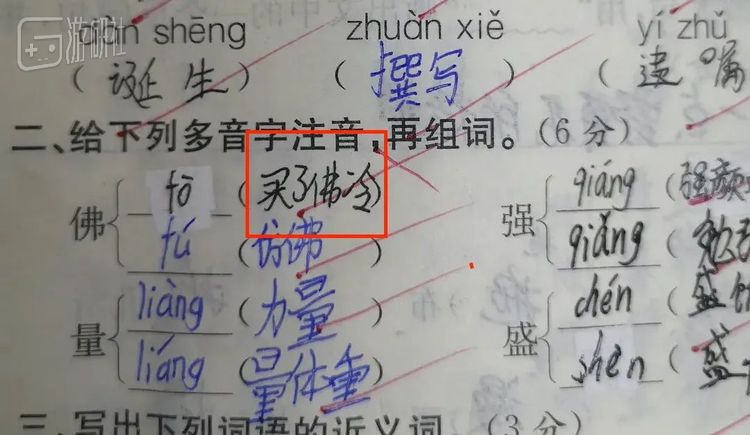 游研社
dàn shēng zhuàn xiě yí zhǔ
(诞生) (撰写) (遗嘱
二、给下列多音字注音,再组词。(6分)
佛 fō (买了佛冷) 强 qiáng (强颜
fú (仿佛) qiǎng (勉
量 liàng (力量) 盛 chén (盛饭
liáng (量体重) shèn (盛
三、写出下列词语的近义词。(3分)